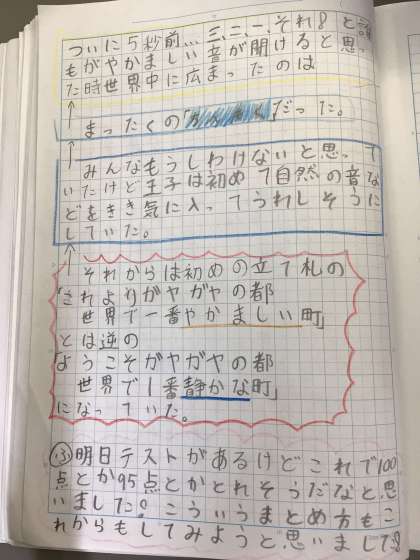 ついに5秒前…三、二、一、それ8と誰
もがやかましい音が聞けると思っ
た時世界中に広まったのは
まったくの「」だった。
みんなもうしわけないと思って
いたけど王子は初めて自然の音な
どをきき気に入ってうれしそうに
していた。
それからは初めの立て札の
「これよりガヤガヤの都
世界で一番やかましい町」
とは逆の
「ようこそガヤガヤの都
世界で1番静かな町」
になっていた。
ふ 明日テストがあるけどこれで100
点とか95点とかとれそうだなと思
いました。こういうまとめ方もこ
れからもしてみようと思いました。